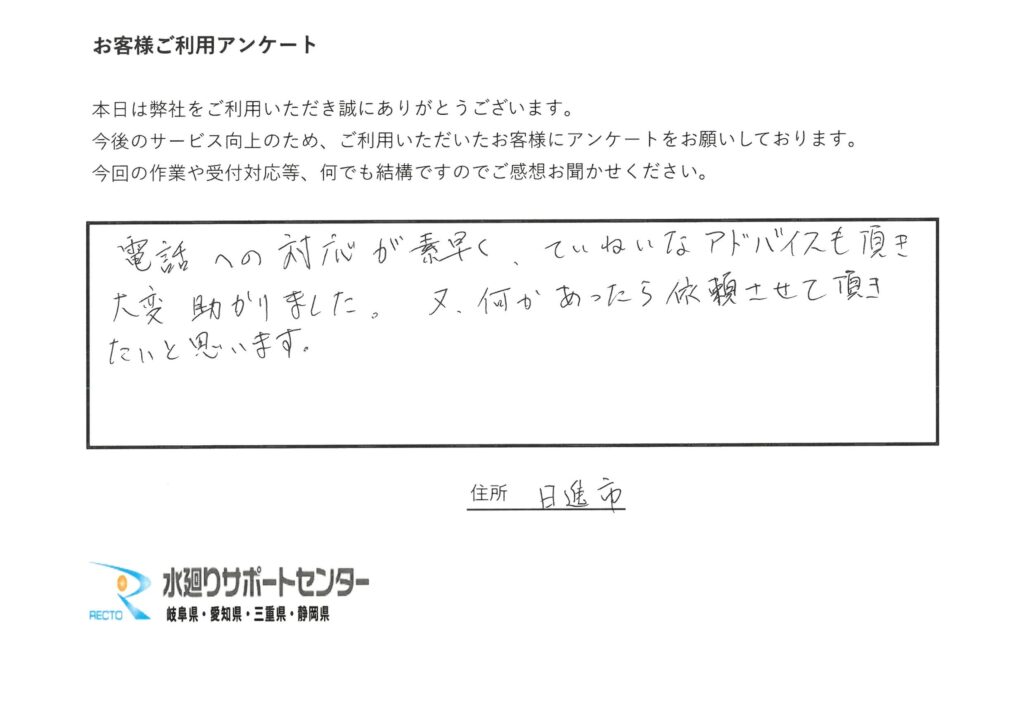 お客様ご利用アンケート
本日は弊社をご利用いただき誠にありがとうございます。
今後のサービス向上のため、ご利用いただいたお客様にアンケートをお願いしております。
今回の作業や受付対応等、何でも結構ですのでご感想お聞かせください。
電話への対応が素早く、ていねいなアドバイスも頂き
大変助かりました。又、何かあったら依頼させて頂き
たいと思います。
住所 日進市
RECTO 水廻りサポートセンター
岐阜県・愛知県・三重県・静岡県